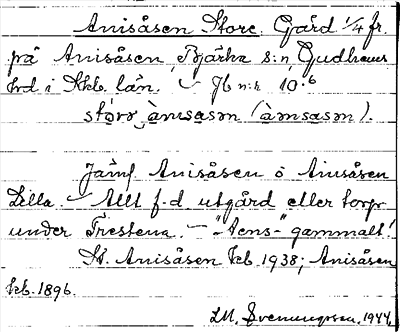 Anisåsen Store. Gård 1/4 fr.
på Anisåsen, Bjärka s:n, Gudhems
hrd i Skb. län. – Jb n:r 10.6
störə ànısasən (àmsasən).
Jämf. Anisåsen o Anisåsen
Lilla. – Allt f.d utgård eller torp
under Trestena. – "-åens-" gammalt!
St. Anisåsen Feb. 1938; Anisåsen
Feb. 1896.
LM. Svenungsson, 1944.